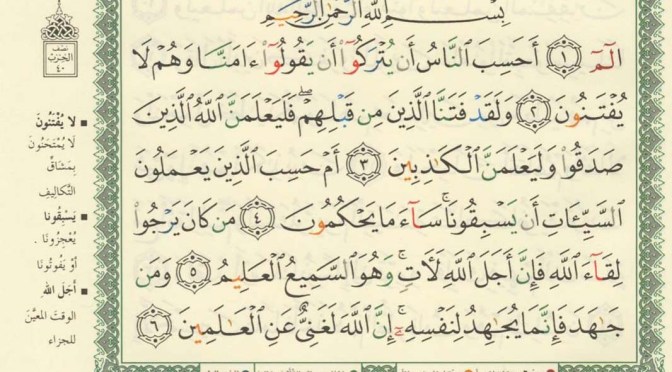 بِسْمِ ٱللَّهِ ٱلرَّحْمَٰنِ ٱلرَّحِيمِ
الٓمٓ ١ أَحَسِبَ ٱلنَّاسُ أَن يُتْرَكُوٓا۟ أَن يَقُولُوٓا۟ ءَامَنَّا وَهُمْ لَا
يُفْتَنُونَ ٢ وَلَقَدْ فَتَنَّا ٱلَّذِينَ مِن قَبْلِهِمْ ۖ فَلَيَعْلَمَنَّ ٱللَّهُ ٱلَّذِينَ
صَدَقُوا۟ وَلَيَعْلَمَنَّ ٱلْكَٰذِبِينَ ٣ أَمْ حَسِبَ ٱلَّذِينَ يَعْمَلُونَ
ٱلسَّيِّـَٔاتِ أَن يَسْبِقُونَا ۚ سَآءَ مَا يَحْكُمُونَ ٤ مَن كَانَ يَرْجُوا۟
لِقَآءَ ٱللَّهِ فَإِنَّ أَجَلَ ٱللَّهِ لَـَٔاتٍ ۚ وَهُوَ ٱلسَّمِيعُ ٱلْعَلِيمُ ٥ وَمَن
جَٰهَدَ فَإِنَّمَا يُجَٰهِدُ لِنَفْسِهِۦٓ ۚ إِنَّ ٱللَّهَ لَغَنِىٌّ عَنِ ٱلْعَٰلَمِينَ ٦
نصف
الحزب
٤٠
■ لا يُفْتَنُونَ
لَا يُمْتَحَنُونَ
بِمَشَاقِّ
التَّكَالِيفِ
■ يَسْبِقُونا
يُعْجِزُونَا .
أَوْ يَفُوتُونَا
■ أَجَلَ الله
الوقتَ المُعَيَّنَ
للجزاء